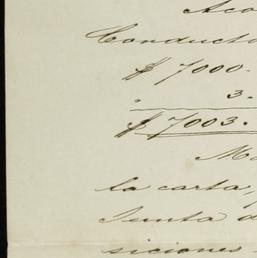 Aco
Conducto
$ 7000.
3.
$ 7003.
Ma
la carta,
Junta d
siciones